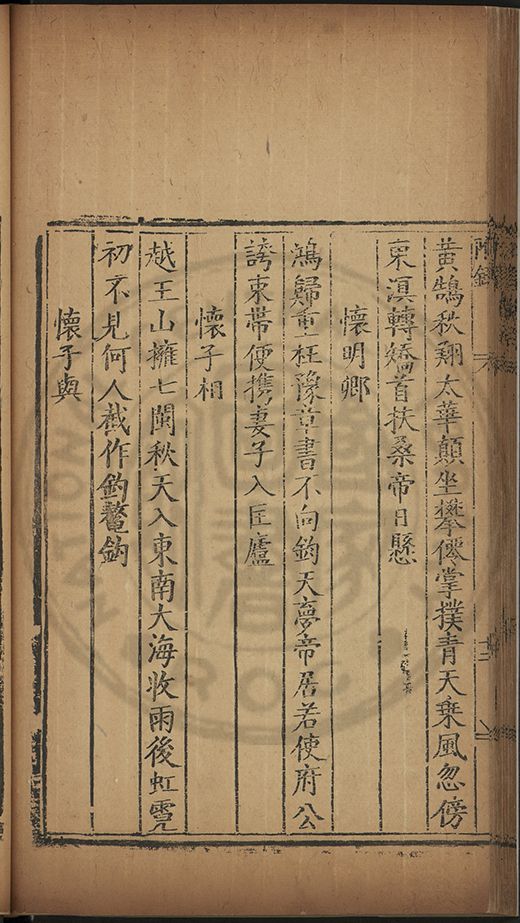 附錄
黄鵠秋翔太華顛坐攀僊掌撲青天乗風忽傍
東溟轉矯首扶桑帝日懸
懷明卿
鴻歸重枉豫章書不向鈞天夢帝居若使府公
誇束帶便携妻子入匡廬
懷子相
越王山擁七閩秋天入東南大海收雨後虹霓
初不見何人截作釣鼇鈎
懷子與